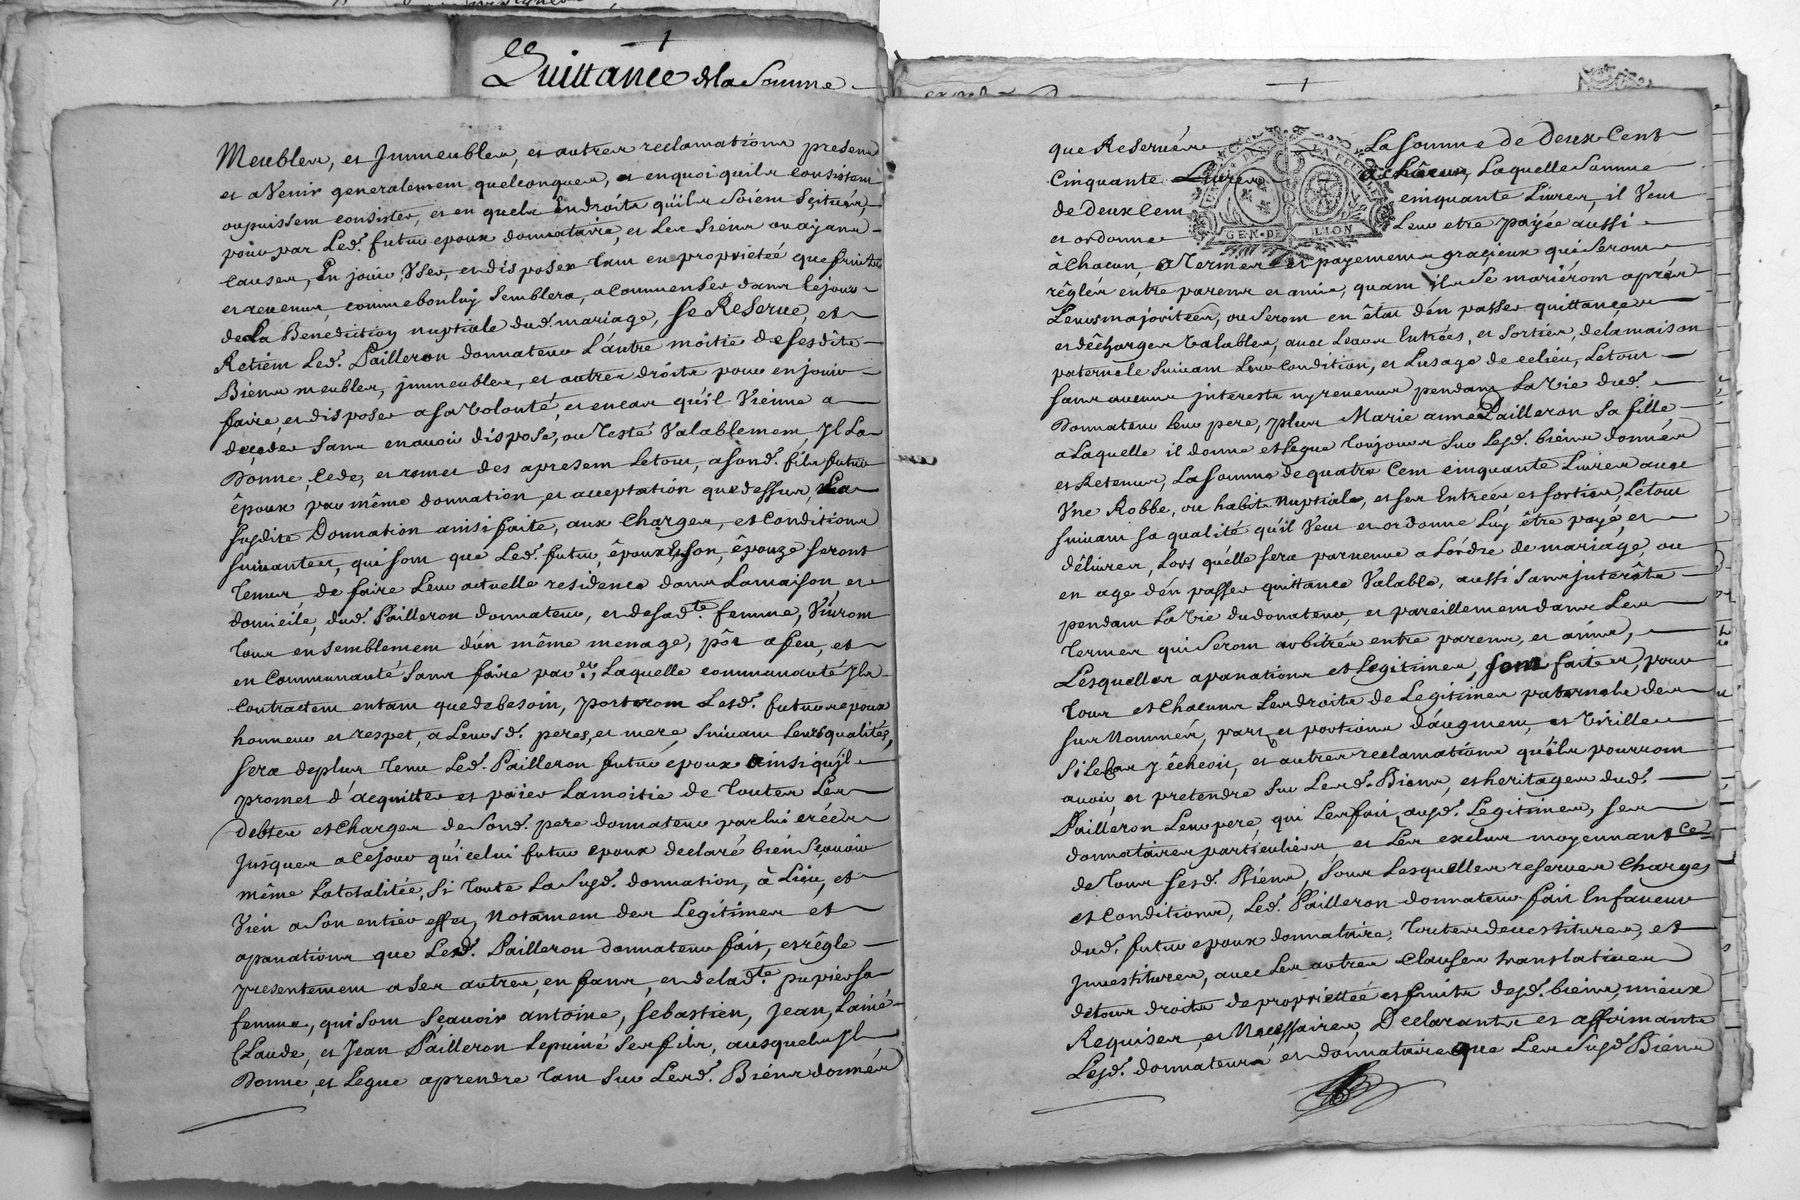 Quittance de la Somme
Meubles, et Jmmeubles, et autres reclamations presens
et aVenir generalement quelconques, et enquoi quils consistent
ou puissent consister, et en quels Endroits quils Soient Scitués,
pour par Led. futur epoux donnataire, et Les Siens ou ayans
causes, En jouir, Vser, et disposer tant en proprietée que fruits
et revenus, comme bon luy Semblera, a Commenser dans le jour
de La Benediction nuptiale dud. mariage, Se ReServe, et
Retient Led. Pailleron donnateur L'autre môitie de sesdits
Biens meubles, jmmeubles, et autres droits pour en jouir
faire, et disposer a sa Volonté, et encas qu'il Vienne a
deçeder sans en avoir disposé, ou Testé Valablement, Jl La
Donne, Cede, et remet des apresent Letout, a sond. fils futur
époux par même donnation, et acceptation que dessus, La
susdite Donnation ainsi faite, aux Charges, et Conditions
suivantes, qui sont que Led. futur époux et son épouze seront
Tenus de faire Leur actuelle residence dans Lamaison et
domicile, dud. Pailleron donnateur, et de sad.te femme, Vivront
Tous ensemblement d'un même menage, pôt a feu, et
en Communauté Sans faire par eux, Laquelle communauté Jls
Contractent entant que debesoin, porteront Lesd. futurs epoux
honneur et respet, a Leurs d. peres, et mere, Suivant Leurs qualités,
sera deplus Tenu Led. Pailleron futur epoux ainsi qu'jl
promet d'acquitter et paier Lamoitie de Toutes Les
debtes et Charges de Sond. pere donnateur par lui créés
Jusques a Cejour qu'icelui futur epoux declaré bien Sçavoir
même Latotalitée, Si Toute La Susd. donnation, à Lieu, et
Vien a Son entier effet, Notament des Legitimes et
apanations que Led. Pailleron donnateur fait, et règle
presentement a Ses autres enfans, et de lad.te Pupier sa
femme, qui Sont Sçavoir antoine, Sebastien, Jean, Lainé
Claude, et Jean Pailleron Lepuiné Ses fils, ausquels Jl
Donne, et Legue aprendre Tant Sur Lesd. Biéns donnés
que Reservés La Somme de deux Cent
Cinquante Livres à Châcun, Laquelle Somme
de deux Cent cinquante Livres, il Veut
et ordonne Leur etre payée aussi
GEN. DE LION
à Chacun, a Termes et payements gracieux qui Seront
règlés entre parens et amis, quant ils Se mariéront après
Leurs majoritées, ou Seront en état d'en passer quittances
et décharges Valables, avec Leurs Entrées, et Sorties, delamaison
paternele Suivant Leur Condition, et Lusage de ce Lieu, Letout
sans aucuns jnterests ny revenus pendant La Vie dud.
Donnateur Leur pere, plus Marie anne Pailleron Sa fille,
a Laquelle il donne et Legue Toujours Sur Lesd. biéns donnés
et Retenus, La Somme de quatre Cent cinquante Livres avec
Vne Robbe, ou habit Nuptiale, et Ses Entrées et Sorties, Letout
suivant sa qualité qu'il Veut et ordonne Luy être payé, et
délivrés, Lors qu'elle sera parvenue a Lordre de mariage, ou
en age d'en passer quittance Valable, aussi Sans jnterêts
pendant La Vie du donateur, et pareillement dans Les
Termes qui Seront arbitrés entre parens, et amis,
Lesquelles apanations et Legitimes, Sont faites, pour
Tous et Chacuns Les droits de Legitimes paternels des
sus Nommés, parts et portions d'augment, et Virilles
Si Le Cas y écheoit, et autres reclamations qu'ils pourront
avoir, et pretendre Sur Lesd. Biens, et heritages dud.
Pailleron Leur pere, qui Les fait, ausd. Legitimes, Ses
donnataires particuliers, et Les exclus moyennant ce
de Tous Sesd. Biéns, Sous Lesquelles reserves Charges
et Conditions, Led. Pailleron donnateur fait En faveur
dud. futur epoux donnataire, Toutes devestitures, et
Jnvestitures, avec Les autres Clauses translatives
detous droits de propriettée et fruits desd. biéns, mieux
Requises, et Nécéssaires, Declarants et affirmants
Lesd. donnateurs et donnataire que Les Susd. Biens